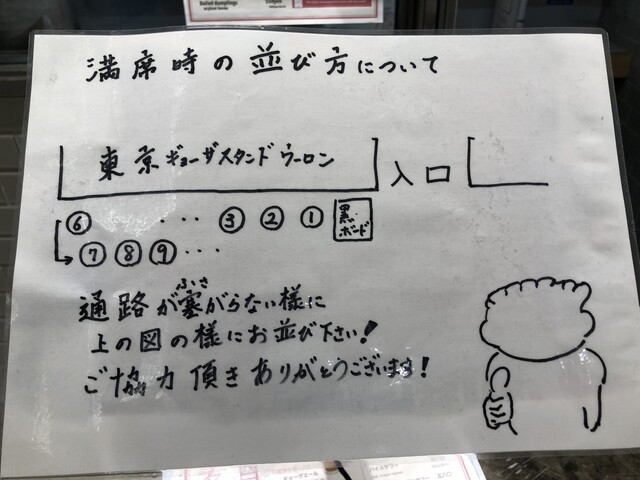 Boiled Dumplings
満席時の並び方について
東京ギョーザスタンドウーロン
入口
⑥ ・・・ ③ ② ① 黒ボード
⑦ ⑧ ⑨ ・・・
通路が塞がらない様に
ふさ
上の図の様にお並び下さい!
ご協力頂きありがとうございます!